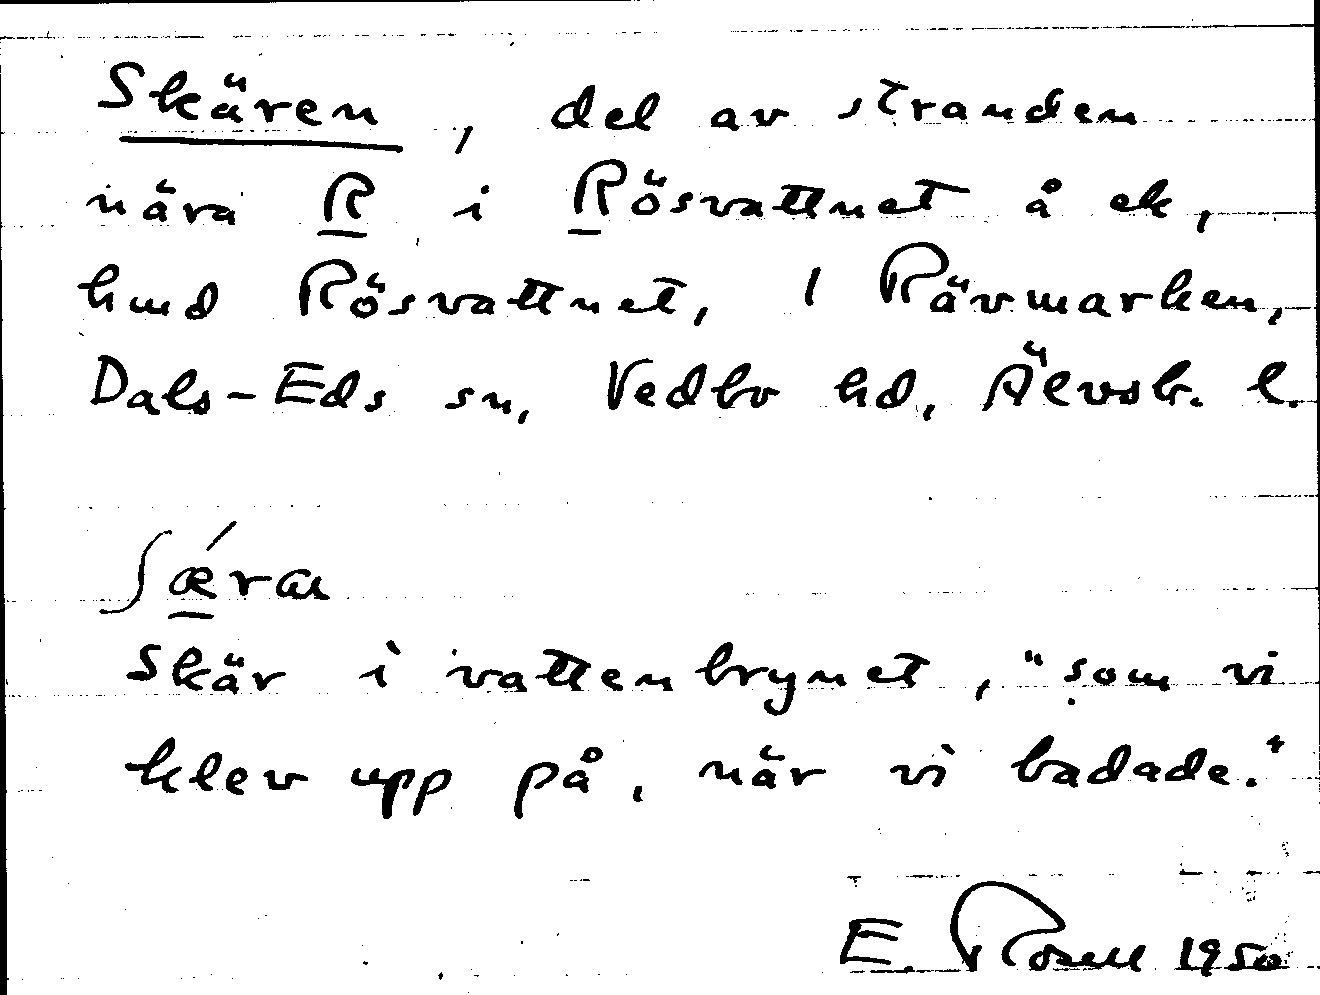 Skären, del av stranden
nära R i Rösvattnet å ek,
hmd Rösvattnet, 1 Rävmarken,
Dals-Eds sn, Vedbo hd, Älvsb. l.
ʃǽran
Skär i vattenbrynet, "som vi
klev upp på, när vi badade."
E. Rosell 1950